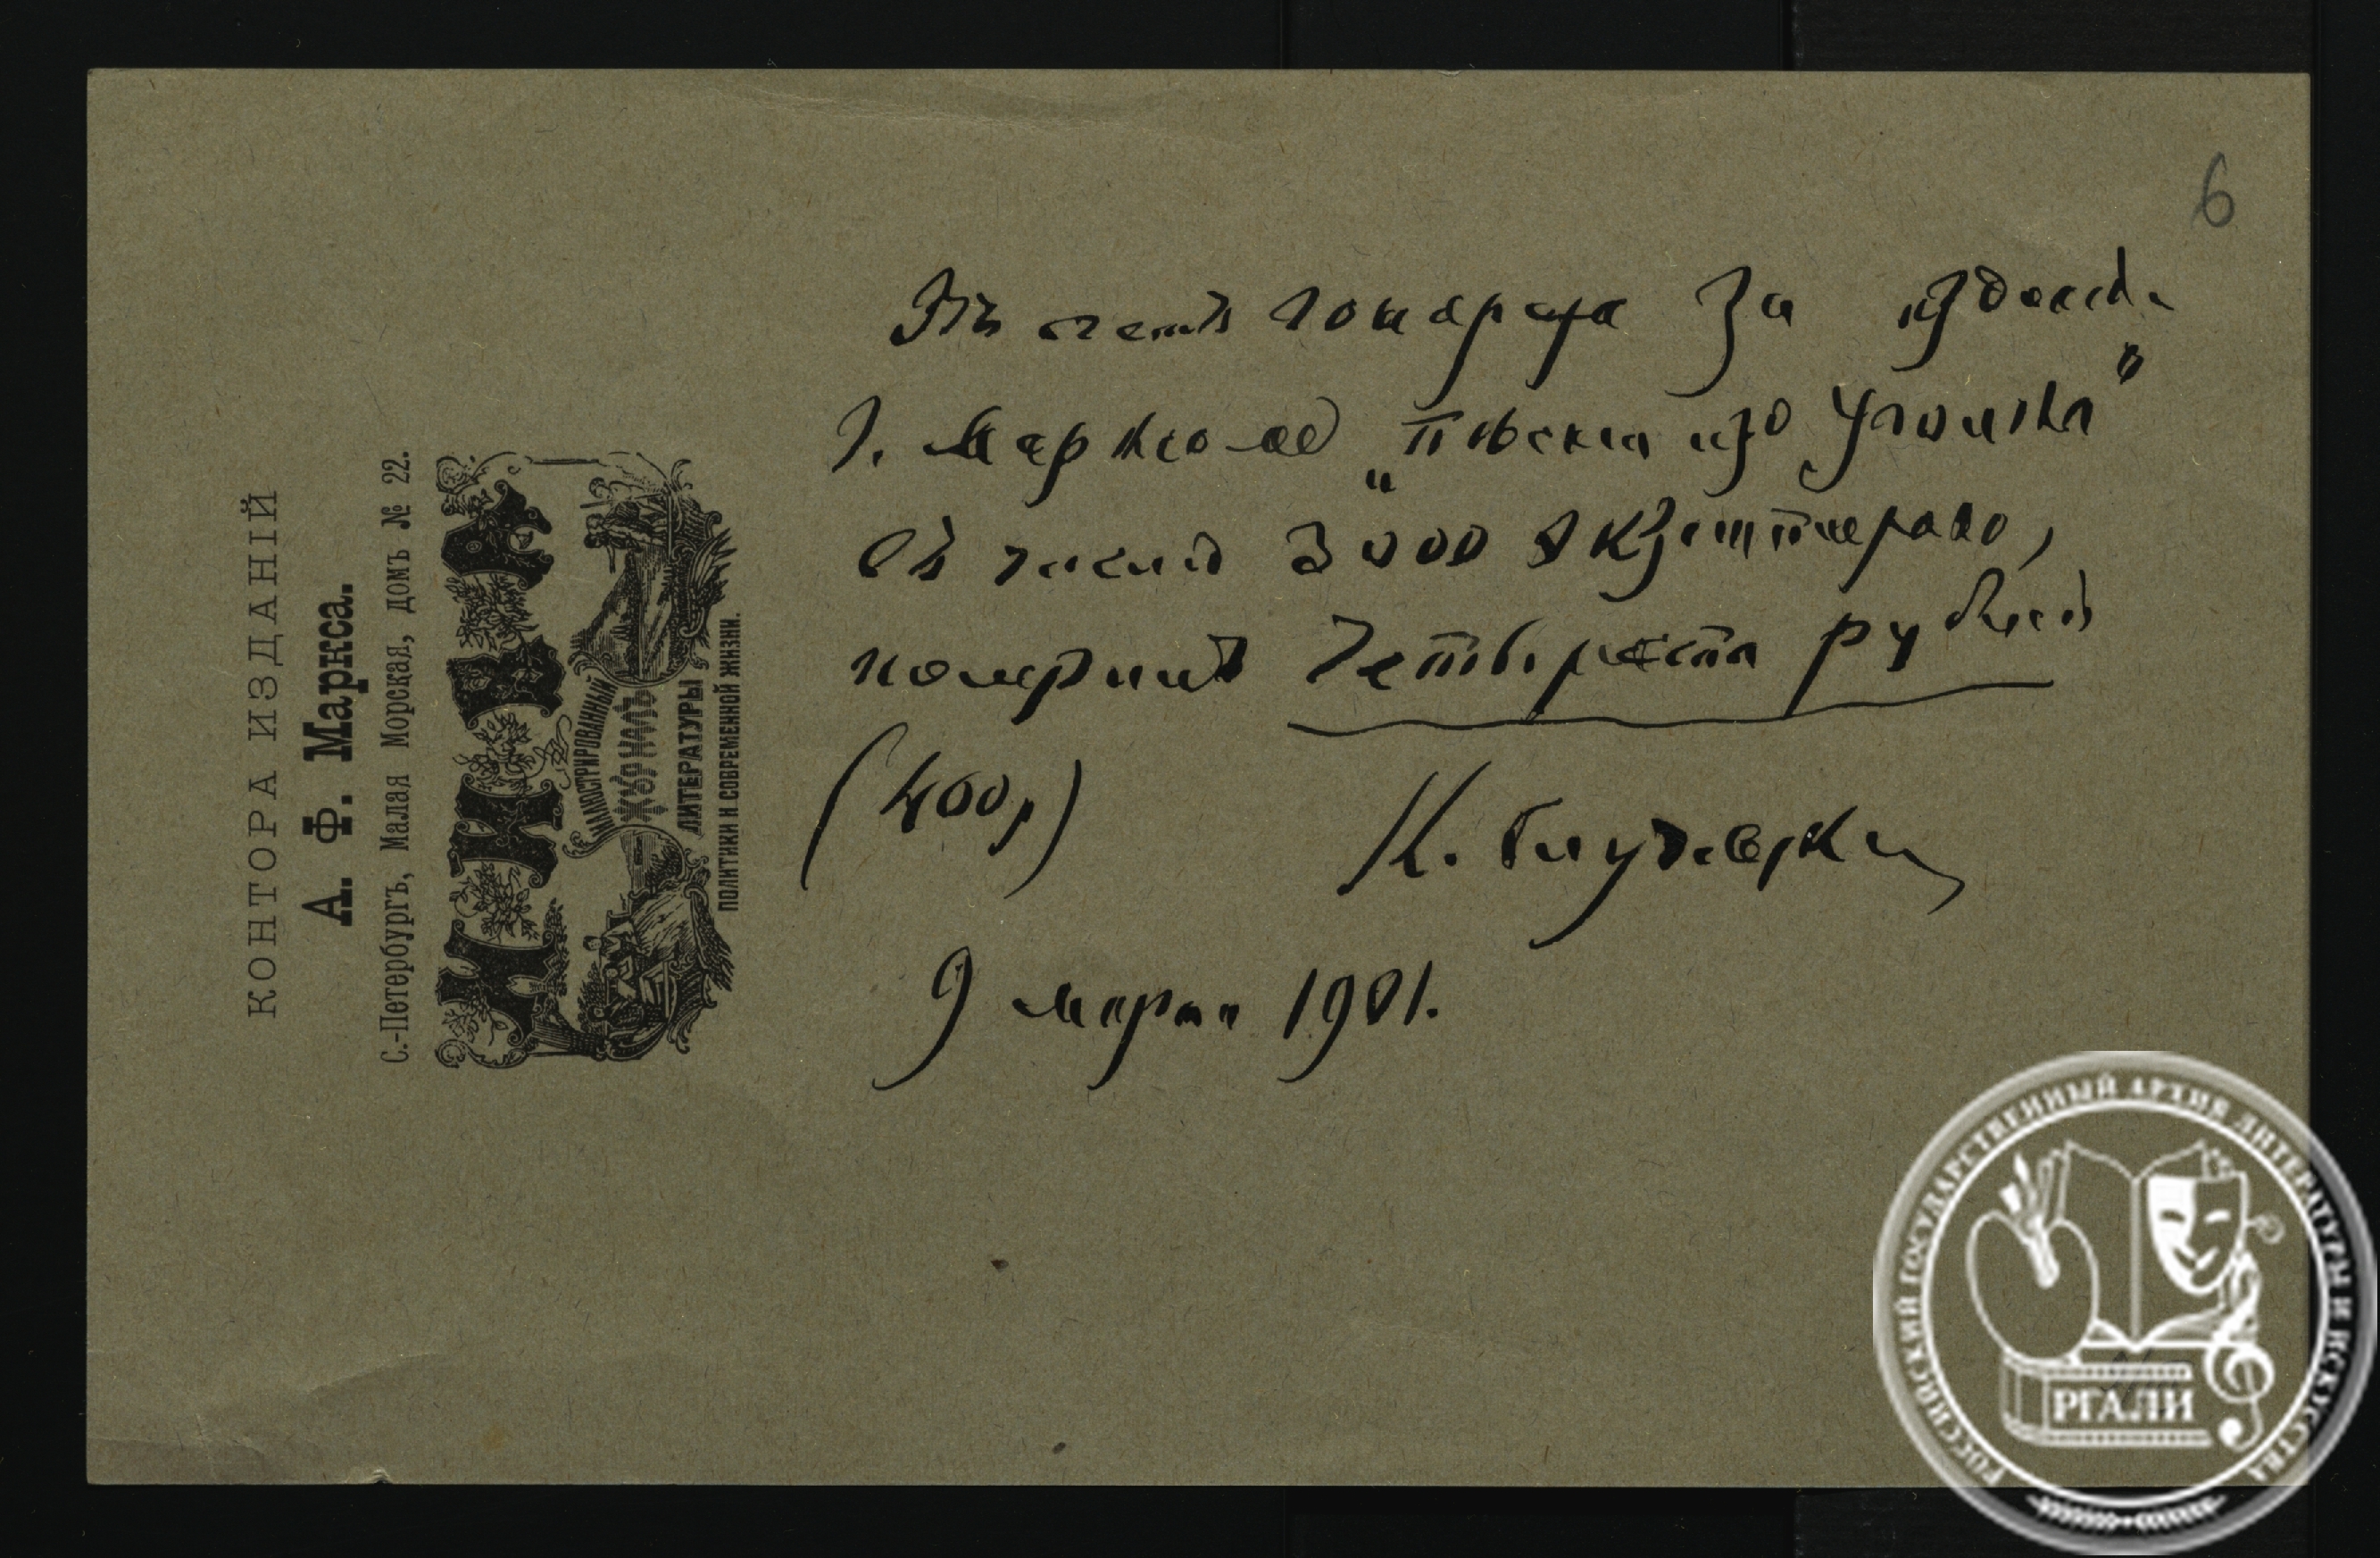 6
КОНТОРА ИЗДАНІЙ
А. Ф. Маркса.
С.-Петербургъ, Малая Морская, домъ № 22.
НИВА
ИЛЛЮСТРИРОВАННЫЙ
ЖУРНАЛЪ
ЛИТЕРАТУРЫ
ПОЛИТИКИ И СОВРЕМЕННОЙ ЖИЗНИ.
Въ счетъ гонорара за изданіе
г. Марксомъ „Пѣсни изъ Уголка"
въ числѣ 3000 экземпляровъ,
получилъ четыреста рублей
(400 р)
К. Случевскій
9 марта 1901.
РОССИЙСКИЙ ГОСУДАРСТВЕННЫЙ АРХИВ ЛИТЕРАТУРЫ И ИСКУССТВА
РГАЛИ